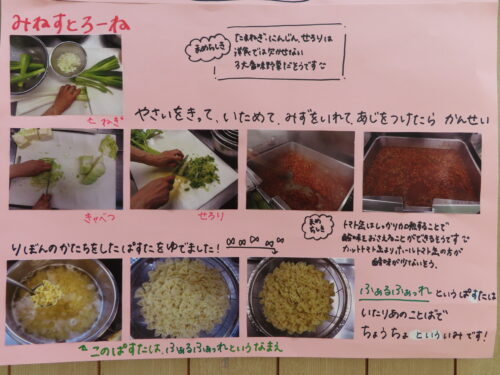 みねすとろーね
まめちしき
たまねぎ・にんじん、せろりは
洋食では欠かせない
3大香味野菜だそうです
ねぎ
やさいをきって、いためて、みずをいれて、あじをつけたら かんせい
きゃべつ
せろり
まめちしき
トマト缶はしっかり加熱することで
酸味をおさえることができるそうです
カットトマト缶よりホールトマト缶の方が
酸味が少ないそう。
りぼんのかたちをしたぱすたをゆでました!
ふぁるふぁっれ というぱすたは
いたりあのことばで
ちょうちょ といういみです!
このぱすたは、ふぁるふぁっれというなまえ